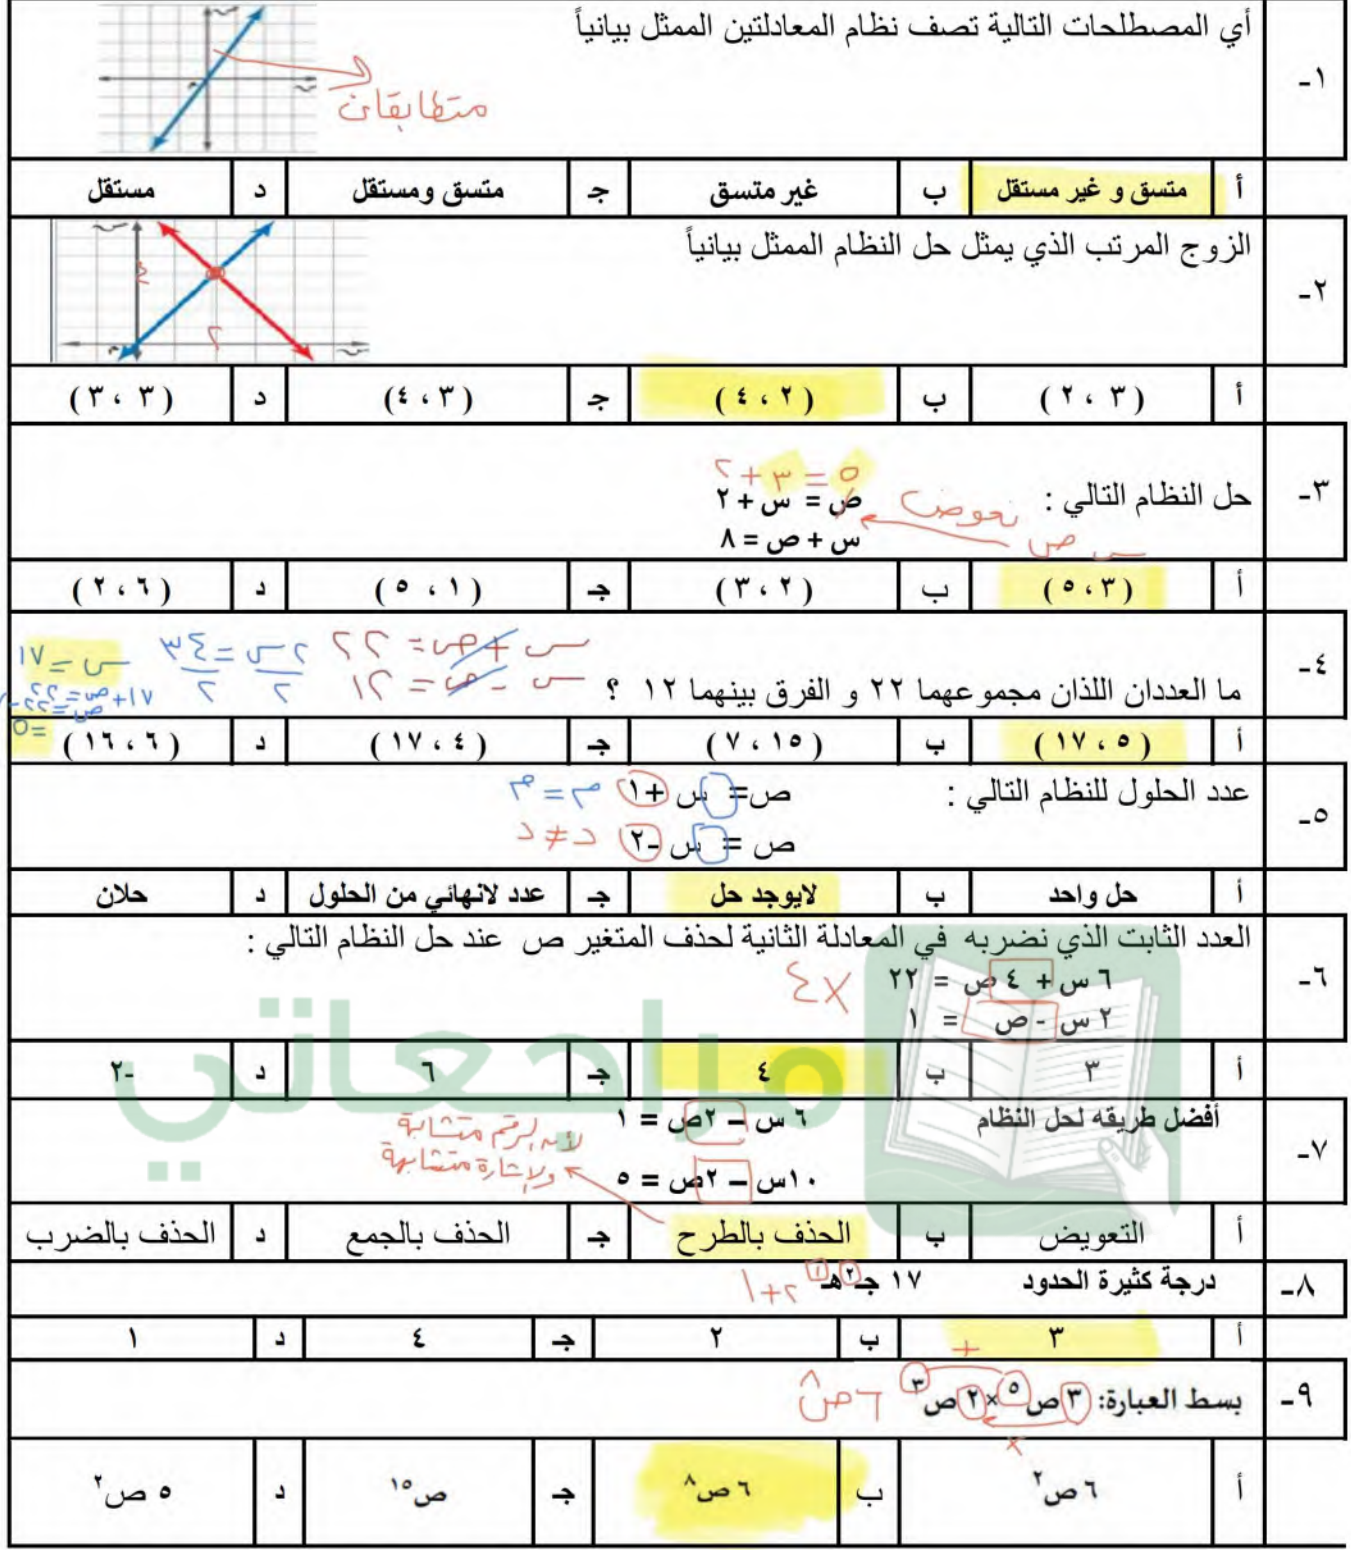 ١- أي المصطلحات التالية تصف نظام المعادلتين الممثل بيانياً
متطابقان
أ متسق و غير مستقل ب غير متسق جـ متسق ومستقل د مستقل
٢- الزوج المرتب الذي يمثل حل النظام الممثل بيانياً
٤
٢
أ ( ٣ ، ٢ ) ب ( ٢ ، ٤ ) جـ ( ٣ ، ٤ ) د ( ٣ ، ٣ )
٥ = ٣ + ٢
٣- حل النظام التالي : ص = س + ٢ نعوض
س + ص = ٨ س ص
أ ( ٣ ، ٥ ) ب ( ٢ ، ٣ ) جـ ( ١ ، ٥ ) د ( ٦ ، ٢ )
س + ص = ٢٢ ٢س = ٣٤ س = ١٧
س - ص = ١٢ ٢ ٢ ١٧ + ص = ٢٢
٤- ما العددان اللذان مجموعهما ٢٢ و الفرق بينهما ١٢ ؟ ص = ٢٢ -
= ٥
أ ( ٥ ، ١٧ ) ب ( ١٥ ، ٧ ) جـ ( ٤ ، ١٧ ) د ( ٦ ، ١٦ )
٥- عدد الحلول للنظام التالي : ص = س + ١ م = م
ص = س -٢ د ≠ د
أ حل واحد ب لايوجد حل جـ عدد لانهائي من الحلول د حلان
٦- العدد الثابت الذي نضربه في المعادلة الثانية لحذف المتغير ص عند حل النظام التالي :
٦ س + ٤ ص = ٢٢ ×٤
٢ س - ص = ١
مراجعاتي
أ ٣ ب ٤ جـ ٦ د -٢
٧- أفضل طريقه لحل النظام ٦ س – ٢ص = ١ لأنه الرقم متشابة
١٠س – ٢ص = ٥ والإشارة متشابهة
أ التعويض ب الحذف بالطرح جـ الحذف بالجمع د الحذف بالضرب
٨- درجة كثيرة الحدود ١٧ جـ٢ هـ١ ٢+١
أ ٣ ب ٢ جـ ٤ د ١
+
٩- بسط العبارة: ٣ص٥ ×٢ص٣ ٦ص٨
×
أ ٦ ص٢ ب ٦ ص٨ جـ ص١٥ د ٥ ص٢